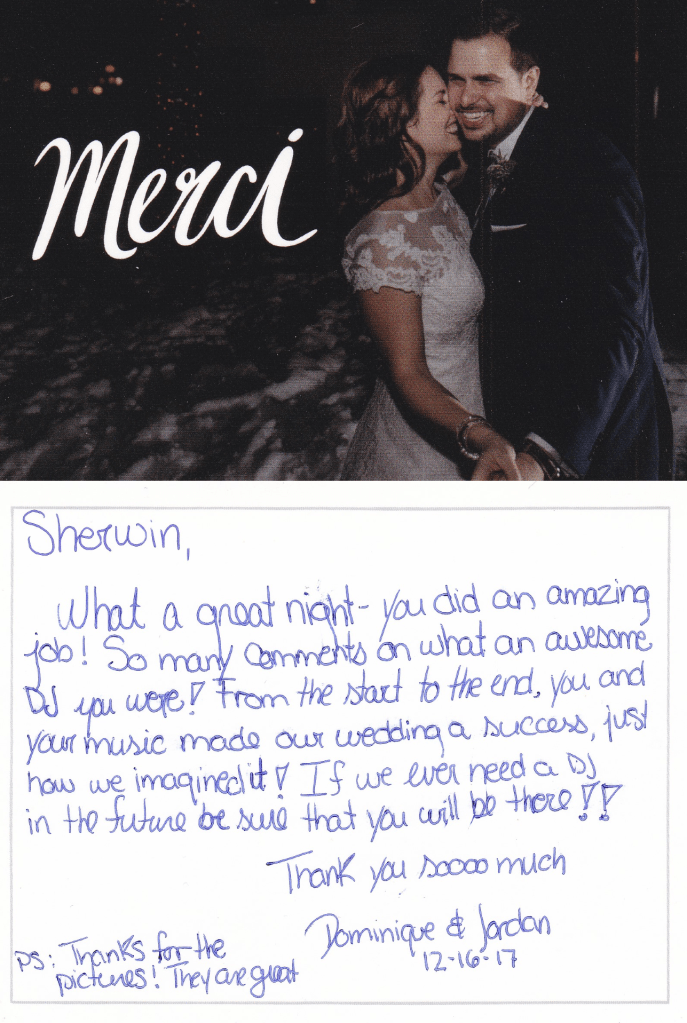 Merci
Sherwin,
What a great night - you did an amazing
job! So many comments on what an awesome
DJ you were! From the start to the end, you and
your music made our wedding a success, just
how we imagined it! If we ever need a DJ
in the future be sure that you will be there!!
Thank you soooo much
Dominique & Jordan
12-16-17
PS: Thanks for the
pictures! They are great